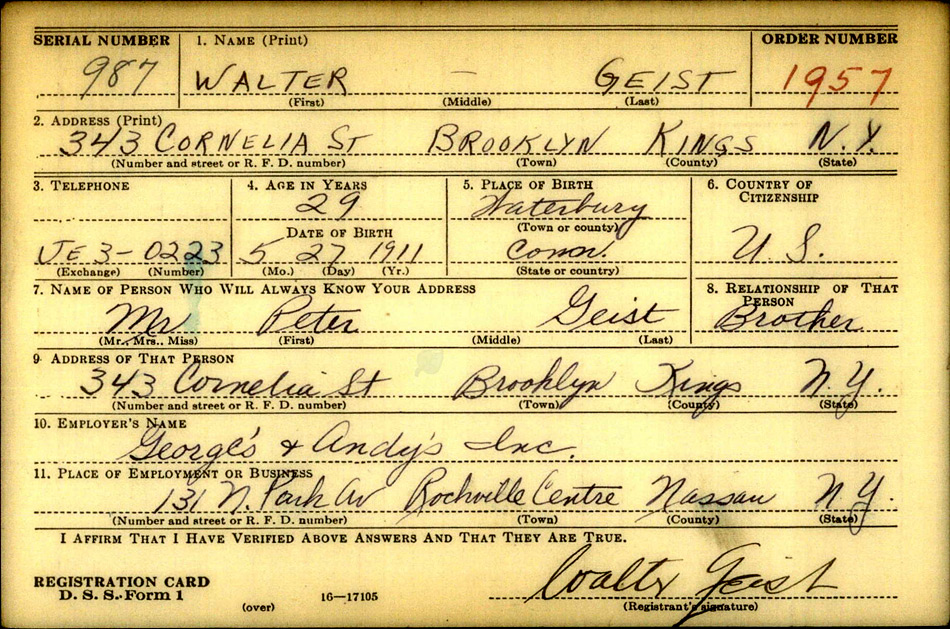 SERIAL NUMBER 1. NAME (Print) ORDER NUMBER
987 WALTER — GEIST 1957
(First) (Middle) (Last)
2. ADDRESS (Print)
343 CORNELIA ST BROOKLYN KINGS N.Y.
(Number and street or R. F. D. number) (Town) (County) (State)
3. TELEPHONE 4. AGE IN YEARS 5. PLACE OF BIRTH 6. COUNTRY OF
CITIZENSHIP
29 Waterbury
DATE OF BIRTH (Town or county)
JE 3-0223 5 27 1911 Conn. U S.
(Exchange) (Number) (Mo.) (Day) (Yr.) (State or country)
7. NAME OF PERSON WHO WILL ALWAYS KNOW YOUR ADDRESS 8. RELATIONSHIP OF THAT
PERSON
Mr Peter Geist Brother
(Mr., Mrs., Miss) (First) (Middle) (Last)
9. ADDRESS OF THAT PERSON
343 Cornelia St Brooklyn Kings N.Y.
(Number and street or R. F. D. number) (Town) (County) (State)
10. EMPLOYER'S NAME
George's & Andy's Inc.
11. PLACE OF EMPLOYMENT OR BUSINESS
131 N. Park Av Rockville Centre Nassau N.Y.
(Number and street or R. F. D. number) (Town) (County) (State)
I AFFIRM THAT I HAVE VERIFIED ABOVE ANSWERS AND THAT THEY ARE TRUE.
Walter Geist
REGISTRATION CARD
D. S. S. Form 1 (over) 16—17105 (Registrant's signature)